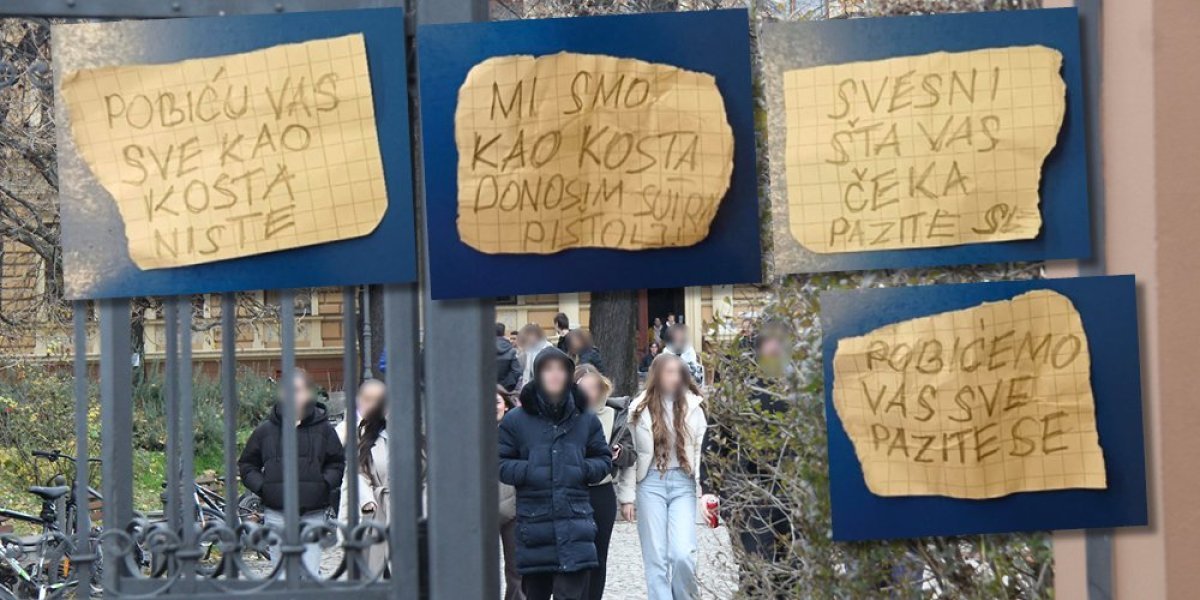 POBIĆU VAS
SVE KAO
KOSTA
NISTE
MI SMO
KAO KOSTA
DONOSIM SUTRA
PIŠTOLJ!
SVESNI
ŠTA VAS
ČEKA
PAZITE SE
POBIĆEMO
VAS SVE
PAZITE SE